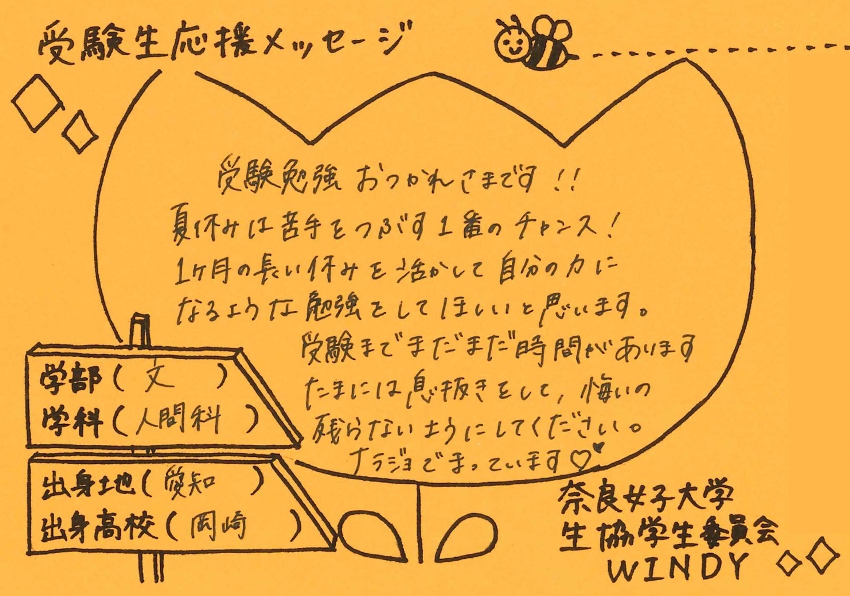 受験生応援メッセージ
受験勉強おつかれさまです!!
夏休みは苦手をつぶす1番のチャンス!
1ヶ月の長い休みを活かして自分の力に
なるような勉強をしてほしいと思います。
受験までまだまだ時間があります
たまには息抜きをして、悔いの
残らないようにしてください。
ナラジョでまっています♡♥
学部(文)
学科(人間科)
出身地(愛知)
出身高校(岡崎)
奈良女子大学
生協学生委員会
WINDY